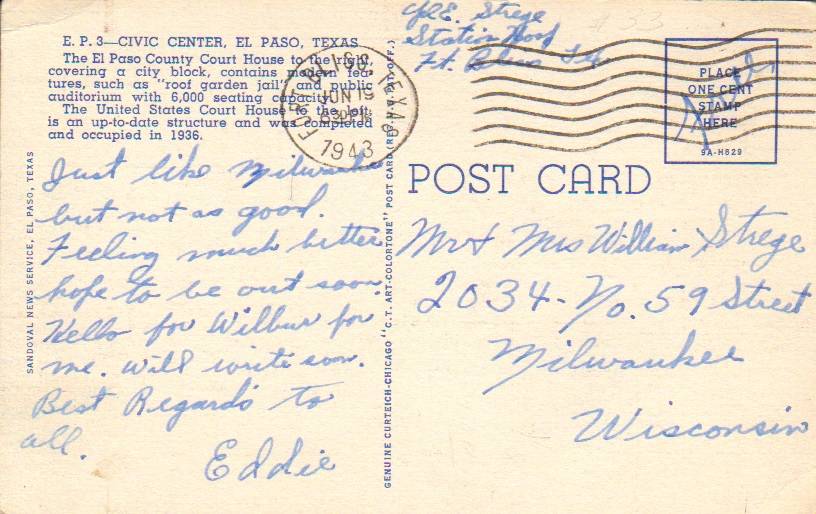 E. P. 3—CIVIC CENTER, EL PASO, TEXAS
The El Paso County Court House to the right,
covering a city block, contains modern fea-
tures, such as "roof garden jail" and public
auditorium with 6,000 seating capacity.
The United States Court House to the left,
is an up-to-date structure and was completed
and occupied in 1936.
Just like Milwaukee
but not as good.
Feeling much better
hope to be out soon.
Hello for Wilbur for
me. will write soon.
Best Regards to
all.
Eddie
SANDOVAL NEWS SERVICE, EL PASO, TEXAS
GENUINE CURTEICH-CHICAGO "C.T. ART-COLORTONE" POST CARD (REG. U.S. PAT. OFF.)
E. Strege
Station Hosp
Ft. Bliss Tex
# 33
FORT BLISS, TEXAS
JUN 19
1943
PLACE
ONE CENT
STAMP
HERE
9A-H829
POST CARD
Mr & Mrs William Strege
2034-No. 59 Street
Milwaukee
Wisconsin